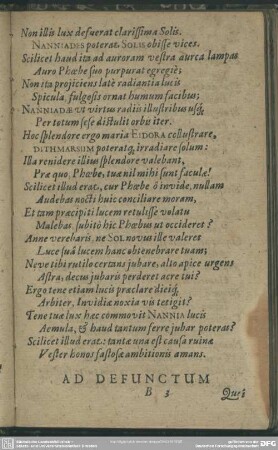 Non illis lux defuerat clarissima Solis.
NANNIADES poterat SOLIS obisse vices.
Scilicet haud ita ad auroram vestra aurea lampas
Auro Phœbe sua purpurat egregiè;
Non ita projiciens latè radiantia lucis
Spicula, fulgosis ornat humum facibus;
NANNIADÆ ut virtus radiis illustribus usq;
Per totum sese distulit orbis iter.
Hoc splendore ergo maria EIDORA collustrare,
DITHMARSUM poteratq; irradiare solum:
Illa renidere illius splendore valebant,
Præ quo, Phœbe, tuæ nil mihi sunt faculæ!
Scilicet illud erat, cur Phœbe ô invide, nullam
Audebas nocti huic conciliare moram,
Et tam præcipiti lucem retulisse volatu
Malebas, subitò hic Phœbus ut occideret?
Anne verebaris, ne SOL novus ille valeret
Luce suâ lucem hanc obtenebrare tuam;
Neve tibi rutilo certans jubare, alto apice urgens
Astra, decus jubaris perderet acre tui?
Ergo tene etiam lucis præclare diciq́;
Arbiter, Invidiæ noxia vis tetigit?
Tene tuæ lux hæc commovit NANNIA lucis
Aemula, & haud tantum ferre jubar poteras?
Scilicet illud erat: tantæ una est causa ruinæ
Vester honos fastosæ ambitionis amans.
AD DEFUNCTUM
B 3
Quòd